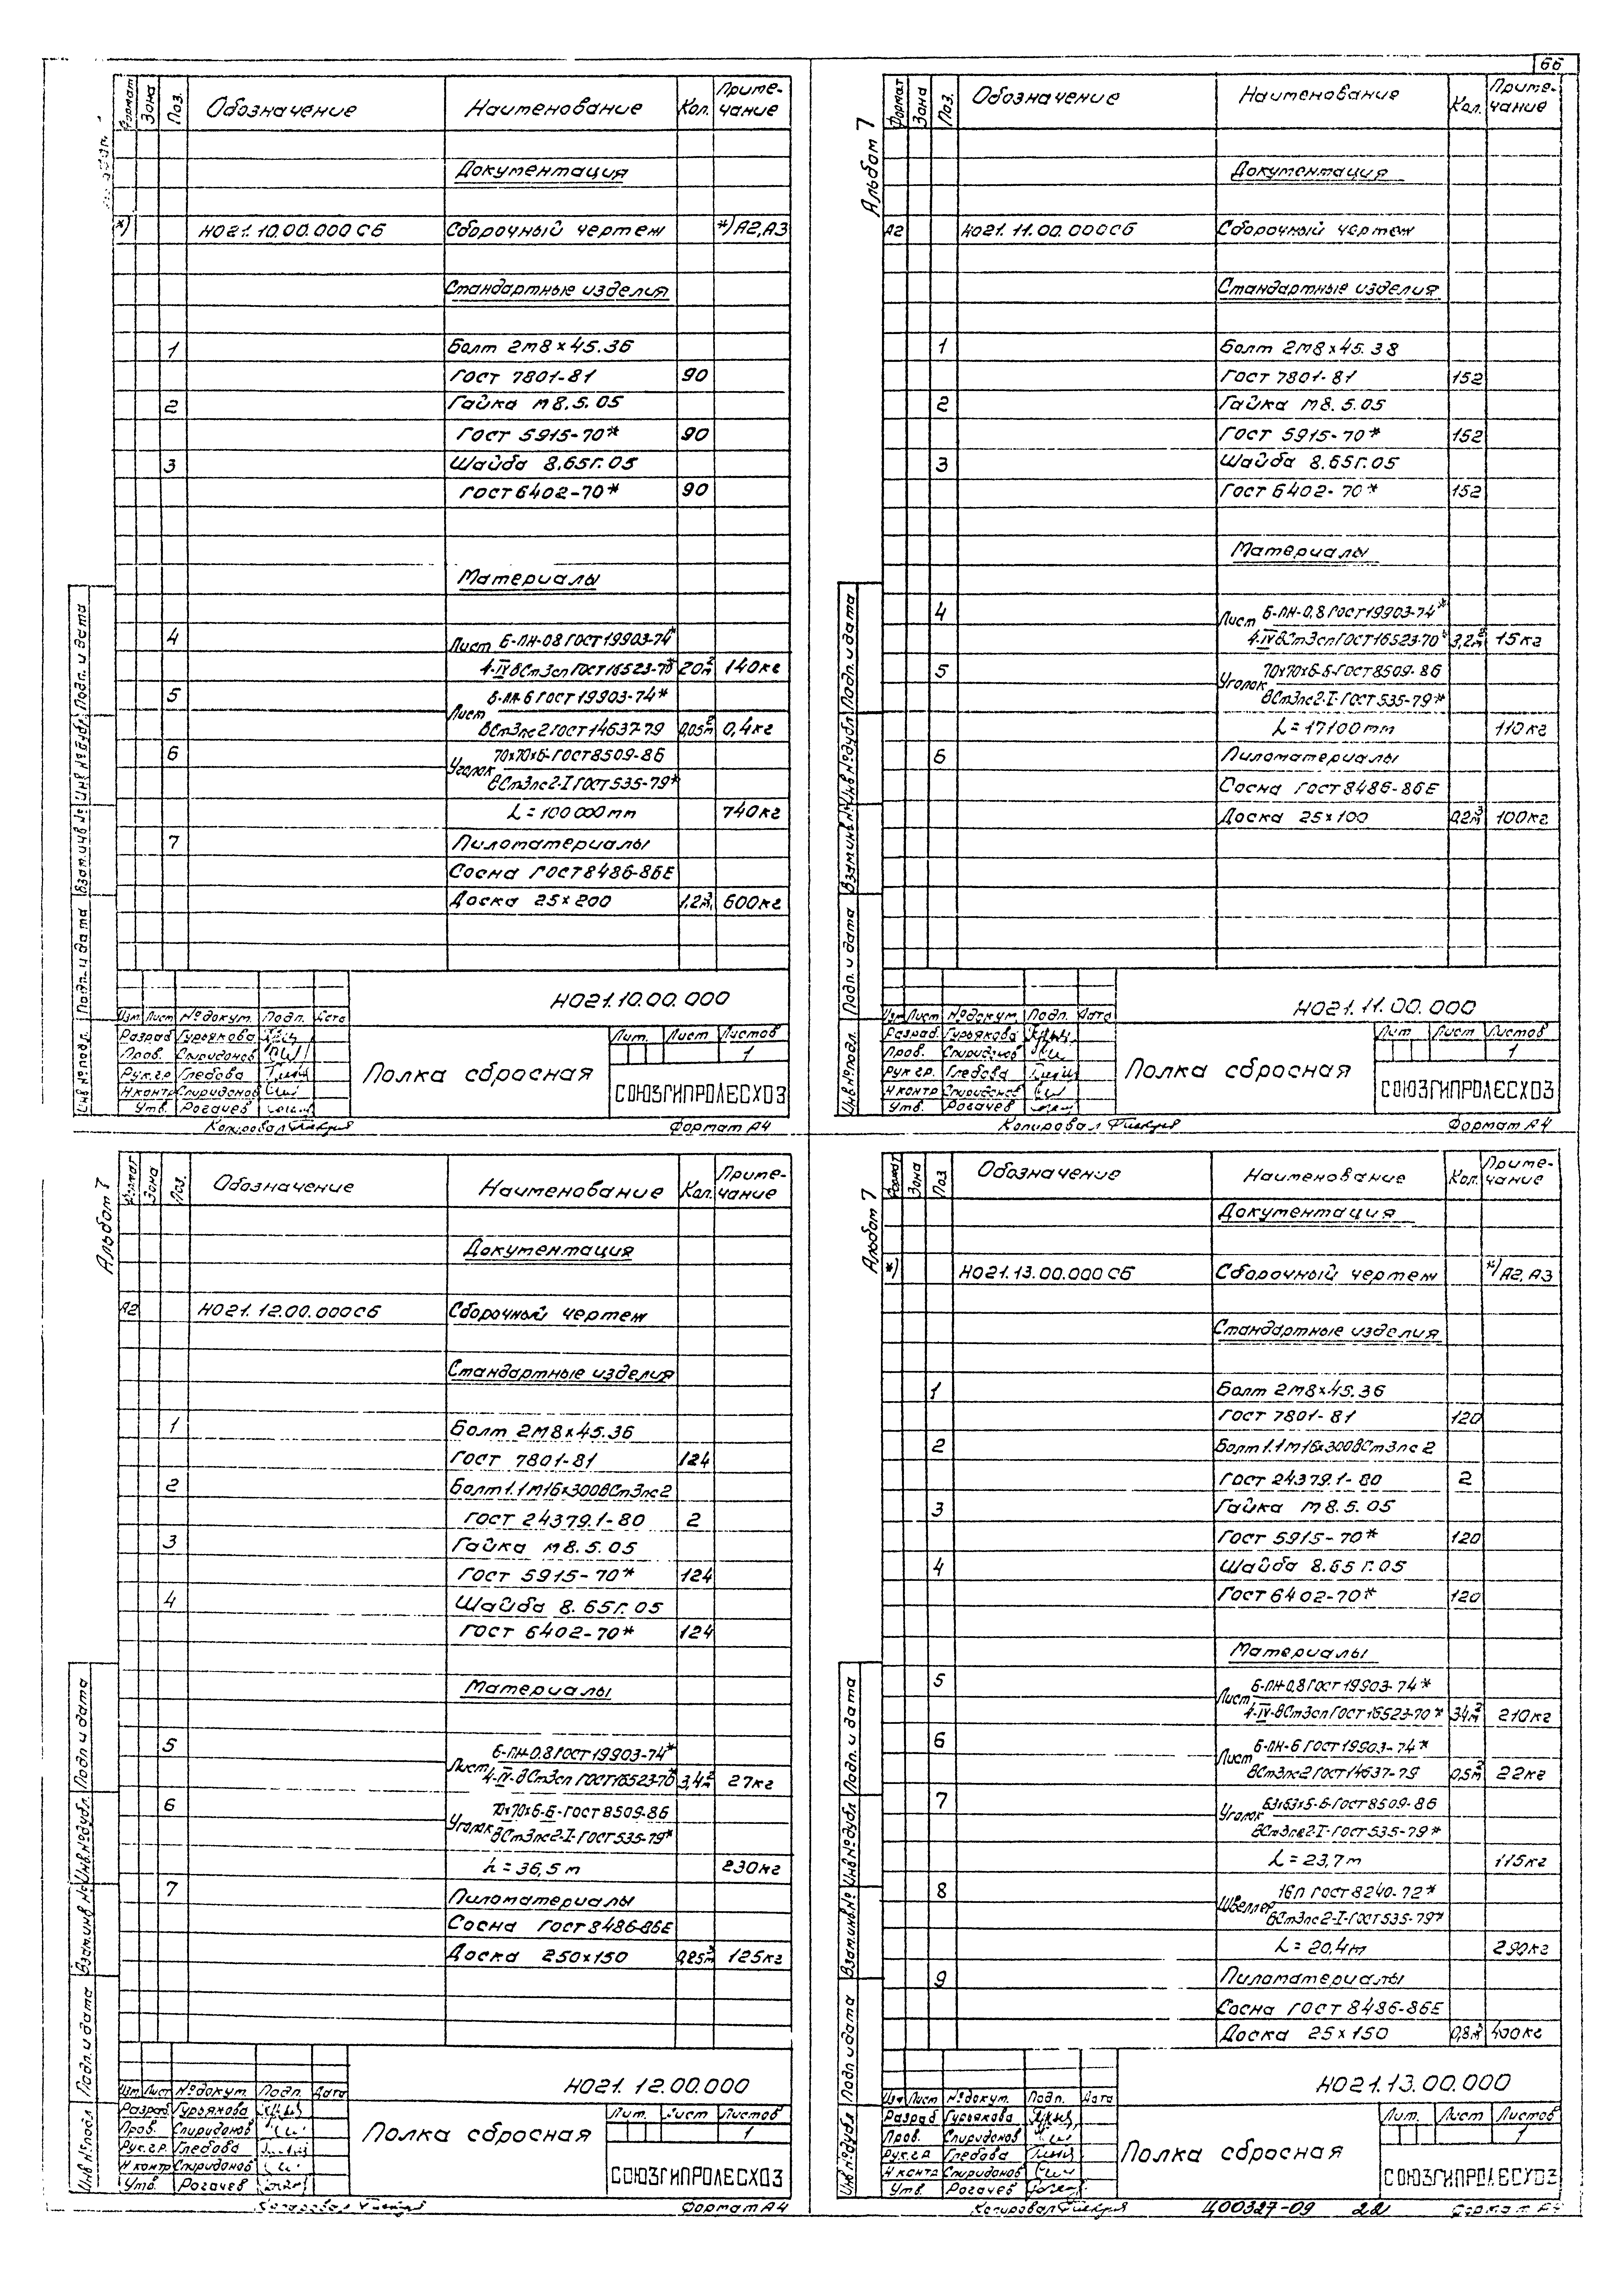 66
Формат Зона Поз. Обозначение Наименование Кол. Приме-
чание
Документация
*) НО21.10.00.000 СБ Сборочный чертеж *) А2,А3
Стандартные изделия
1 Болт 2М8×45.36
ГОСТ 7801-81 90
2 Гайка М8.5.05
ГОСТ 5915-70* 90
3 Шайба 8.65Г.05
ГОСТ 6402-70* 90
Материалы
4 Лист Б-ПН-0.8 ГОСТ 19903-74*
4-IV ВСт3сп ГОСТ 16523-70* 20м² 140кг
5 Лист Б-ПН-6 ГОСТ 19903-74*
ВСт3пс2 ГОСТ 14637-79 0,05м² 0,4кг
6 Уголок 70х70х6-ГОСТ 8509-86
ВСт3пс2-I ГОСТ 535-79*
L = 100 000 мм 740кг
7 Пиломатериалы
Сосна ГОСТ 8486-86Е
Доска 25×200 1,2м³ 600кг
Подп. и дата
Инв № дубл.
Взам. инв №
Подп. и дата
Инв № подл.
НО21.10.00.000
Изм. Лист № докум. Подп. Дата
Разраб Гурьякова
Пров. Спиридонов
Рук.гр. Глебова
Н контр Спиридонов
Утв. Рогачев
Полка сбросная
Лит. Лист Листов
1
СОЮЗГИПРОЛЕСХОЗ
Копировал Формат А4
Альбом 7
Формат Зона Поз. Обозначение Наименование Кол. Приме-
чание
Документация
А2 НО21.11.00.000 СБ Сборочный чертеж
Стандартные изделия
1 Болт 2М8×45.38
ГОСТ 7801-81 152
2 Гайка М8.5.05
ГОСТ 5915-70* 152
3 Шайба 8.65Г.05
ГОСТ 6402-70* 152
Материалы
4 Лист Б-ПН-0,8 ГОСТ 19903-74*
4-IV ВСт3сп ГОСТ 16523-70* 3,2м² 15кг
5 Уголок 70х70х6-Б-ГОСТ 8509-86
ВСт3пс2-I-ГОСТ 535-79*
L = 17100 мм 110кг
6 Пиломатериалы
Сосна ГОСТ 8486-86Е
Доска 25×100 0,2м³ 100кг
Подп. и дата
Инв № дубл
Взам инв №
Подп. и дата
Инв № подл.
НО21.11.00.000
Изм Лист № докум. Подп. Дата
Разраб. Гурьякова
Пров. Спиридонов
Рук гр. Глебова
Н контр Спиридонов
Утв. Рогачев
Полка сбросная
Лит. Лист Листов
1
СОЮЗГИПРОЛЕСХОЗ
Копировал Формат А4
Альбом 7
Формат Зона Поз. Обозначение Наименование Кол. Приме-
чание
Документация
А2 НО21.12.00.000 СБ Сборочный чертеж
Стандартные изделия
1 Болт 2М8×45.36
ГОСТ 7801-81 124
2 Болт 1.1М16×300ВСт3пс2
ГОСТ 24379.1-80 2
3 Гайка М8.5.05
ГОСТ 5915-70* 124
4 Шайба 8.65Г.05
ГОСТ 6402-70* 124
Материалы
5 Лист Б-ПН-0.8 ГОСТ 19903-74*
4-IV-ВСт3сп ГОСТ 16523-70* 3,4м² 27кг
6 Уголок 70х70х6-Б-ГОСТ 8509-86
ВСт3пс2-I-ГОСТ 535-79*
L = 36,5 м 230кг
7 Пиломатериалы
Сосна ГОСТ 8486-86Е
Доска 250×150 0,25м³ 125кг
Подп и дата
Инв № дубл.
Взам инв №
Подп. и дата
Инв № подл
НО21.12.00.000
Изм Лист № докум. Подп. Дата
Разраб Гурьякова
Пров. Спиридонов
Рук.гр. Глебова
Н контр Спиридонов
Утв. Рогачев
Полка сбросная
Лит. Лист Листов
1
СОЮЗГИПРОЛЕСХОЗ
Копировал Формат А4
Альбом 7
Формат Зона Поз Обозначение Наименование Кол. Приме-
чание
Документация
*) НО21.13.00.000 СБ Сборочный чертеж *) А2, А3
Стандартные изделия
1 Болт 2М8×45.36
ГОСТ 7801-81 120
2 Болт 1.1М16×300ВСт3пс2
ГОСТ 24379.1-80 2
3 Гайка М8.5.05
ГОСТ 5915-70* 120
4 Шайба 8.65Г.05
ГОСТ 6402-70* 120
Материалы
5 Лист Б-ПН-0,8 ГОСТ 19903-74*
4-IV-ВСт3сп ГОСТ 16523-70* 34м² 210кг
6 Лист Б-ПН-6 ГОСТ 19903-74*
ВСт3пс2 ГОСТ 14637-79 0,5м² 22кг
7 Уголок 63х63х5-Б-ГОСТ 8509-86
ВСт3пс2-I-ГОСТ 535-79*
L = 23,7 м 115кг
8 Швеллер 16П ГОСТ 8240-72*
ВСт3пс2-I-ГОСТ 535-79*
L = 20,4м 290кг
9 Пиломатериалы
Сосна ГОСТ 8486-86Е
Доска 25×150 0,8м³ 400кг
Подп. и дата
Инв № дубл
Взам инв №
Подп и дата
Инв № дубл
НО21.13.00.000
Изм Лист № докум. Подп. Дата
Разраб Гурьякова
Пров. Спиридонов
Рук.гр Глебова
Н контр Спиридонов
Утв. Рогачев
Полка сбросная
Лит. Лист Листов
1
СОЮЗГИПРОЛЕСХОЗ
Копировал Ц00327-09 22 Формат А4